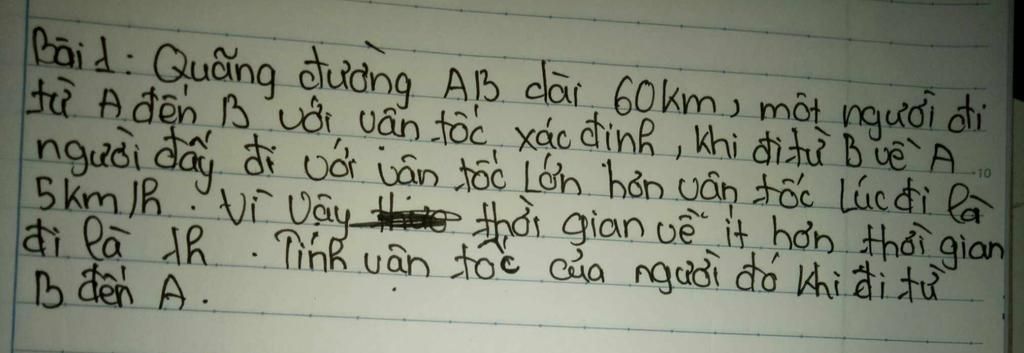 Bài 1: Quãng đường AB dài 60km, một người đi
từ A đến B với vận tốc xác định, khi đi từ B về A
người đấy đi với vận tốc lớn hơn vận tốc lúc đi là
5km/h. Vì vậy thời gian về ít hơn thời gian
đi là 1h. Tính vận tốc của người đó khi đi từ
B đến A.